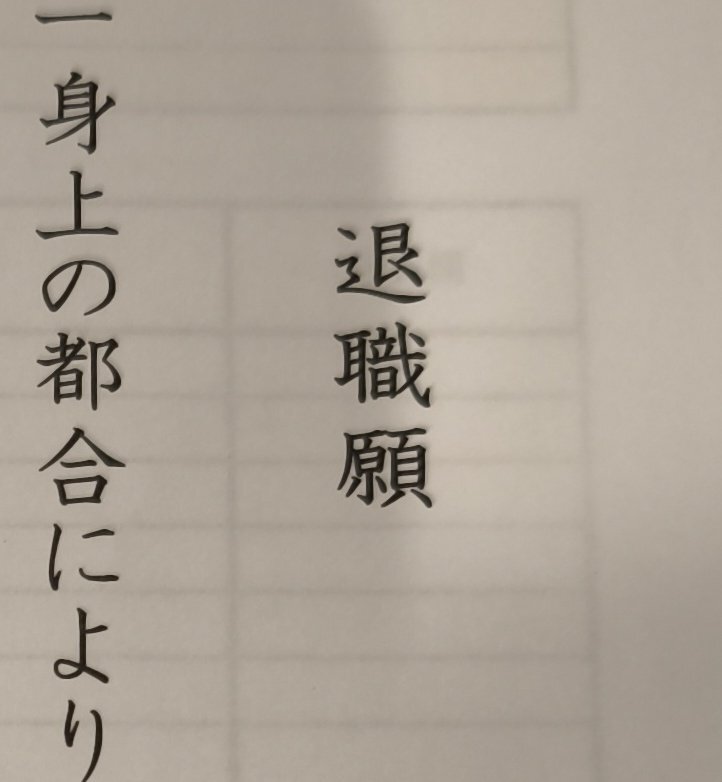 退職願
一身上の都合により